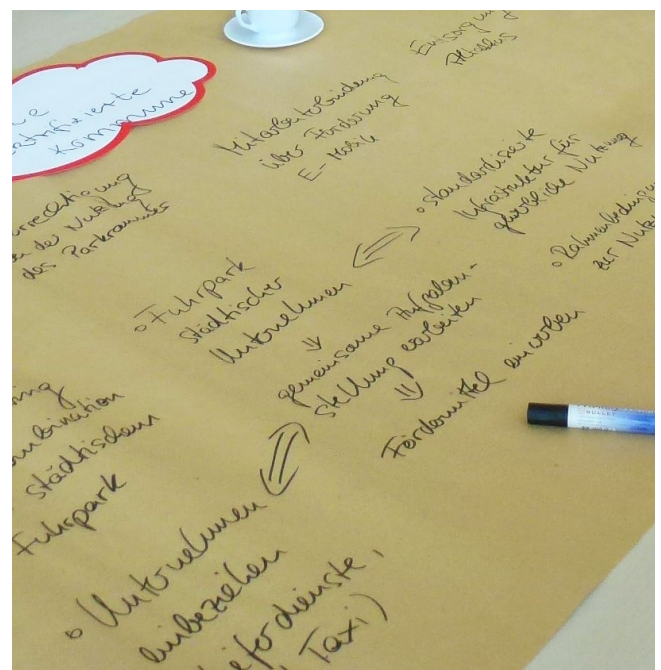 Kommune
Entsorgung
Altakkus
Mitarbeiterbindung
über Förderung
E-Mobilität
der Nutzung
des Parkraumes
standardisierte
Infrastruktur für
gewerbliche Nutzung
Rahmenbedingun
zur Nutz
Fuhrpark
städtischer
Unternehmen
gemeinsame Aufgaben-
stellung erarbeiten
Fördermittel einwerben
städtischem
Fuhrpark
Unternehmen
einbeziehen
dienste,
Taxi)
BULLET